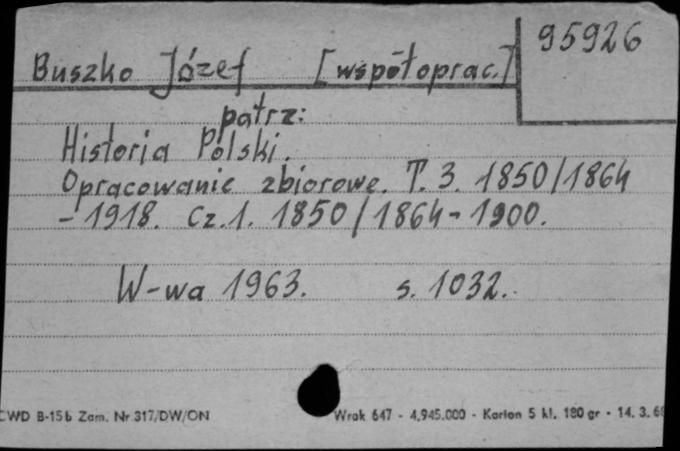 95926
Buszko Józef [współoprac.]
patrz:
Historia Polski.
Opracowanie zbiorowe. T. 3. 1850/1864
- 1918. Cz. 1. 1850/1864 - 1900.
W-wa 1963. s. 1032.
CWD B-15b Zam. Nr 317/DW/ON Wrak 647 - 4.945.000 - Karton 5 kl. 180 gr - 14. 3. 68